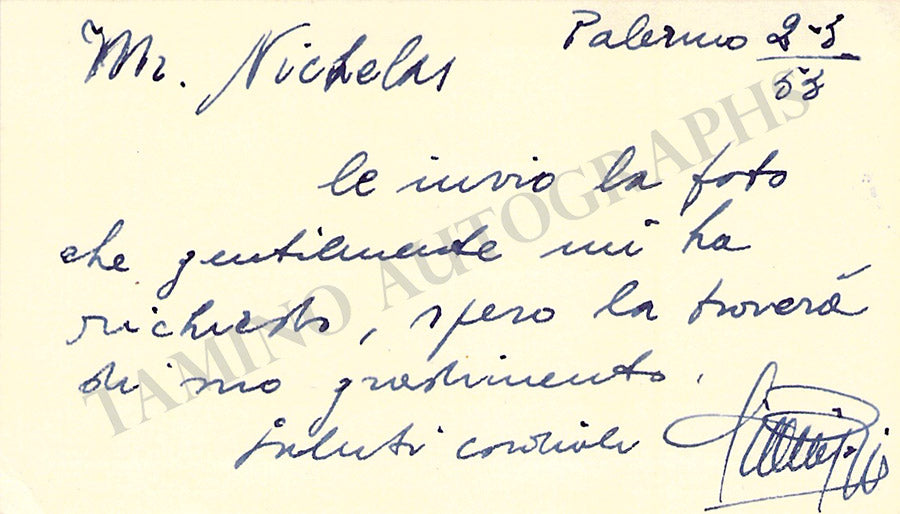 Palermo 2-3
53
Mr. Nichelas
le invio la foto
che gentilmente mi ha
richiesto, spero la troverá
di suo gradimento.
Saluti cordiali
TAMINO AUTOGRAPHS